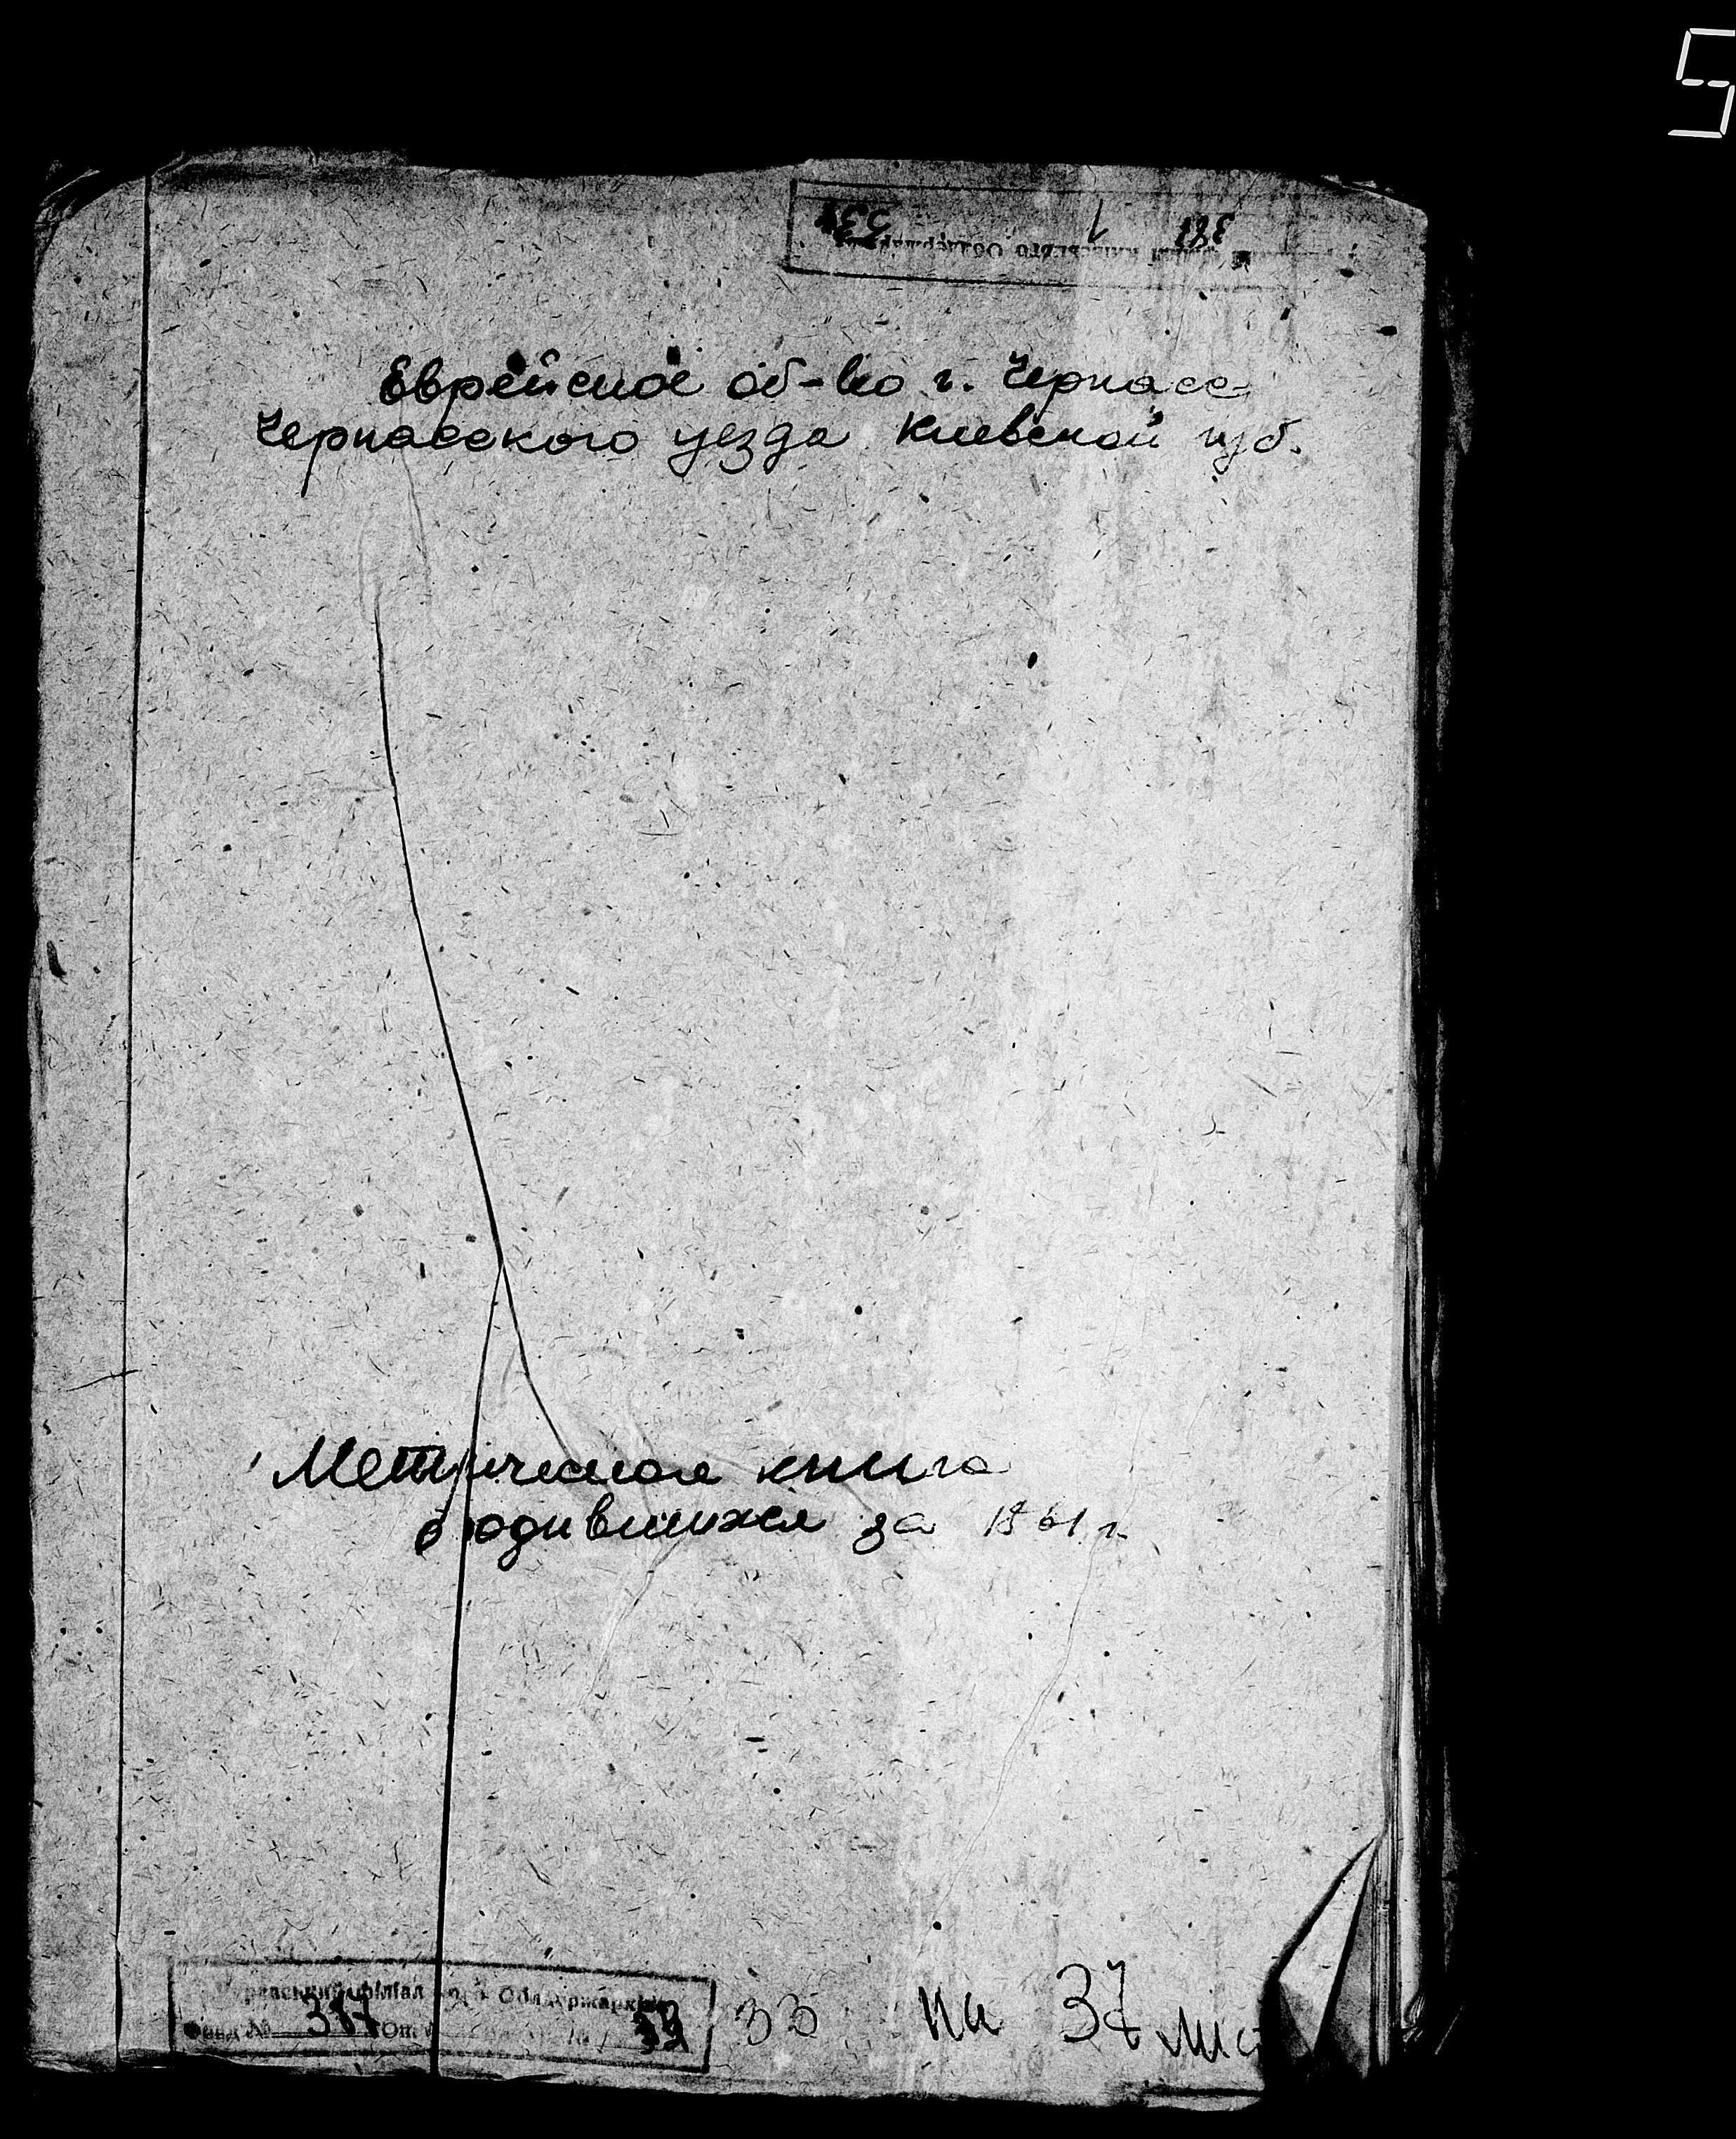 5
Еврейское об-во г. Черкасс
Черкасского уезда Киевской губ.
Метрическая книга
о родившихся за 1861 г.
філіал Облдержархіву
Фонд № 387 Оп.
33 на 37